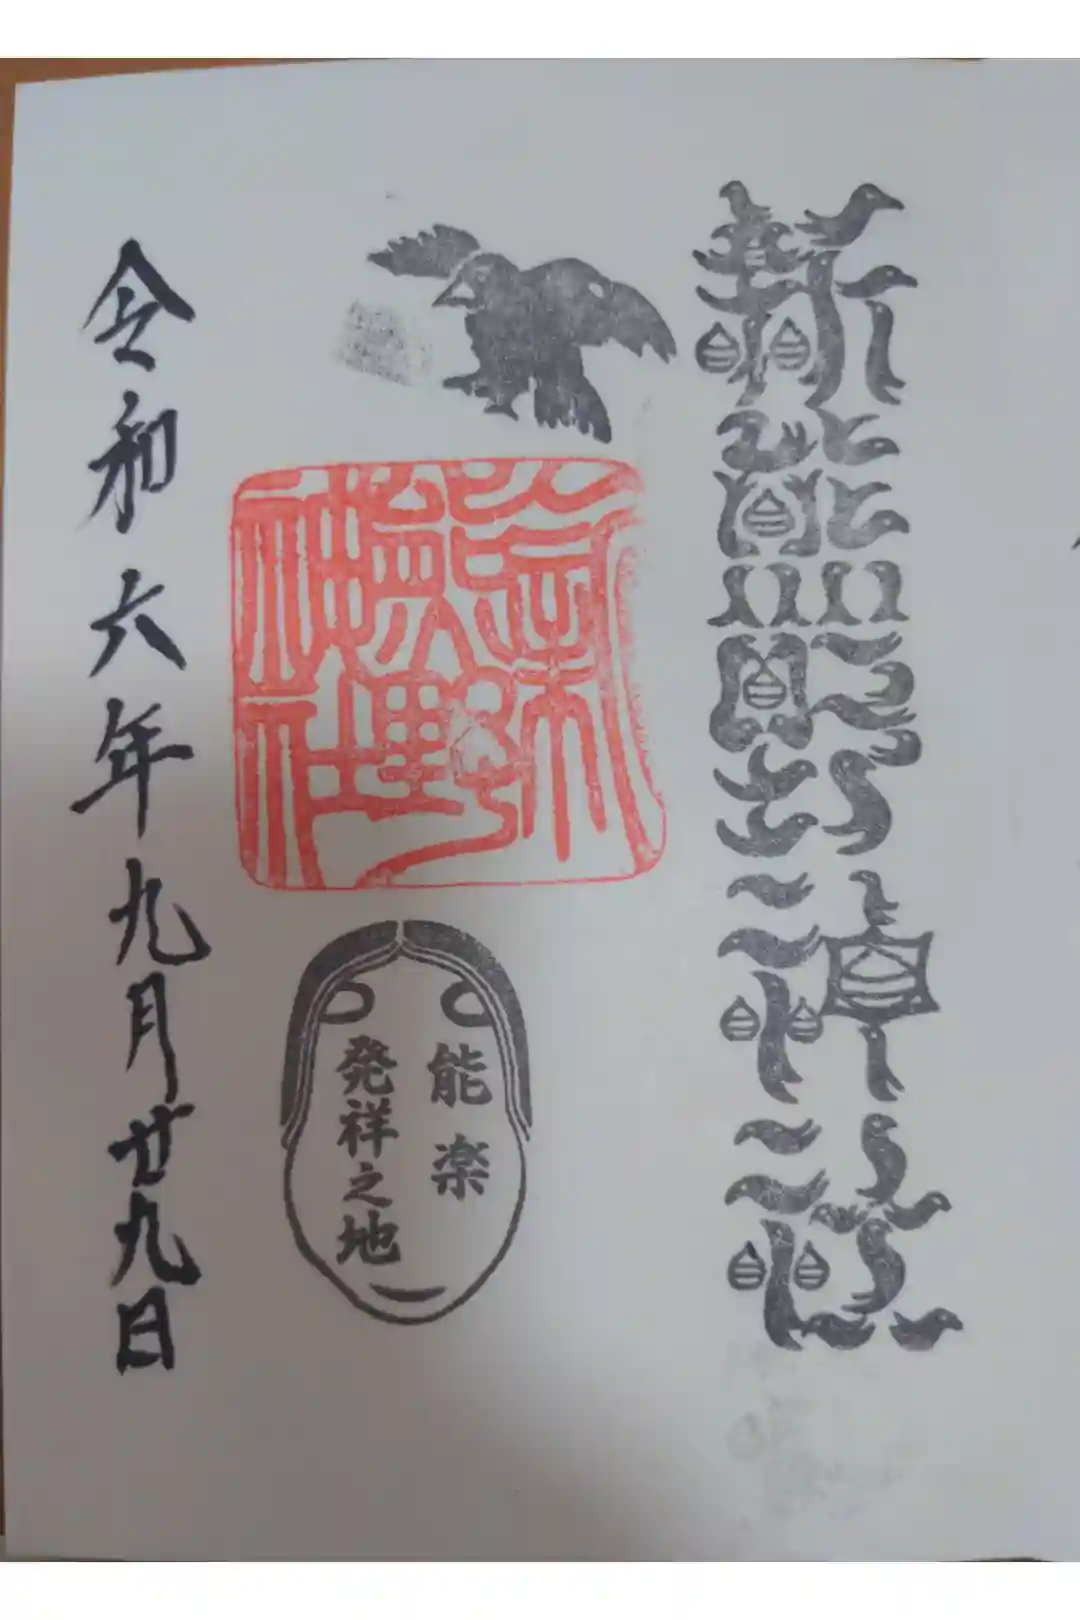 新熊野神社
新熊野神社
能楽
発祥之地
令和六年九月廿九日